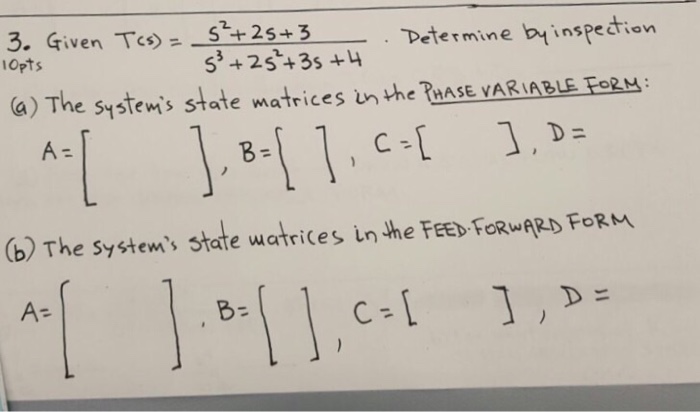 3. Given T(s) = s²+2s+3 / s³+2s²+3s+4 . Determine by inspection
10pts
(a) The system's state matrices in the PHASE VARIABLE FORM:
A = [ ], B = [ ], C = [ ], D =
(b) The system's state matrices in the FEED-FORWARD FORM
A = [ ], B = [ ], C = [ ], D =